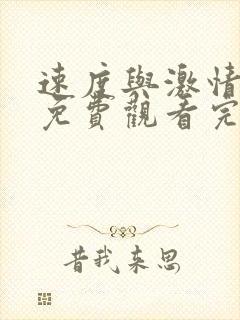 速度與激情
免費觀看完
昔我来思